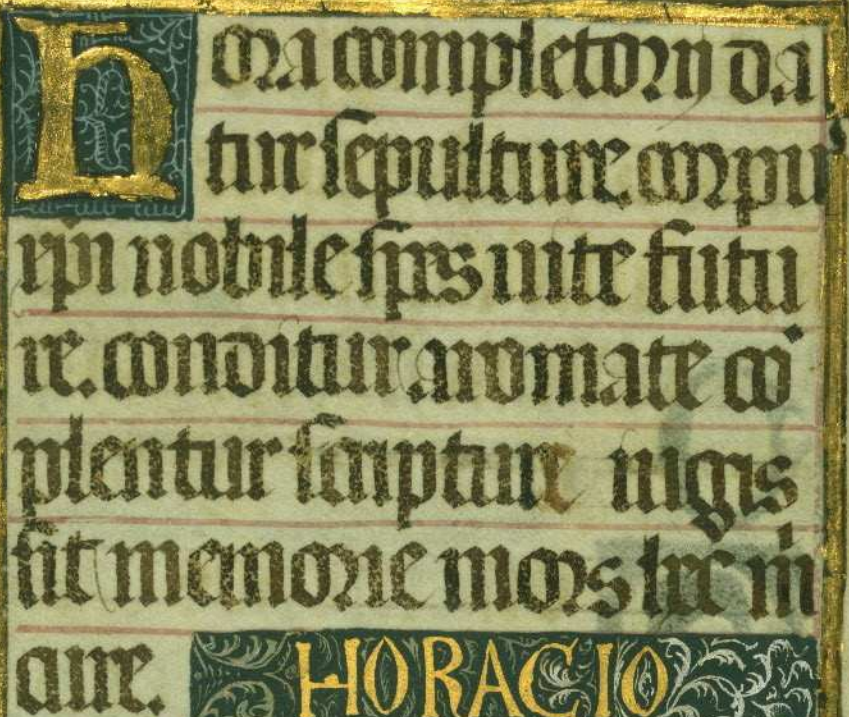 Hora completorij da
tur sepulture. corpu
xpi nobile spes uite futu
re. conditur aromate cō
plentur scripture iugis
sit memorie mors hec m̄
cure.
HORACIO